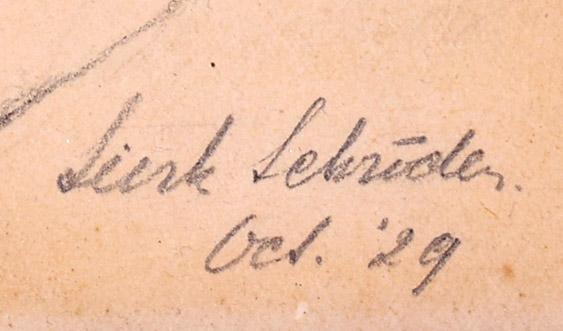 Sierk Schröder.
Oct. '29